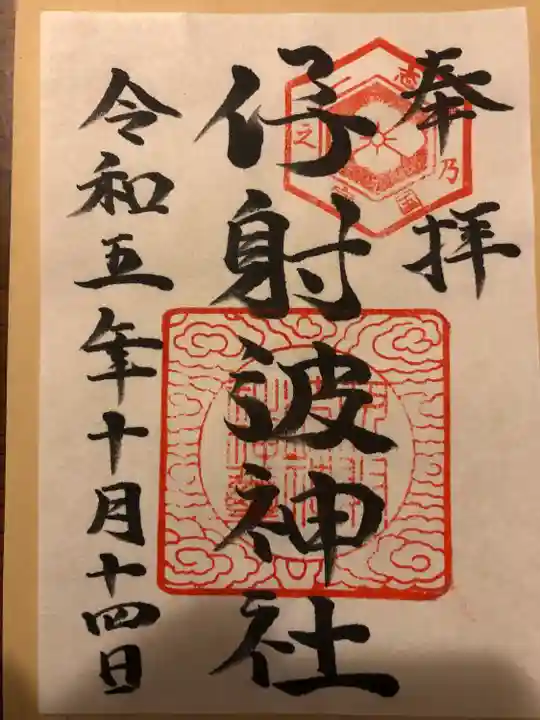 奉拝
伊射波神社
令和五年十月十四日
志摩乃国
一之宮